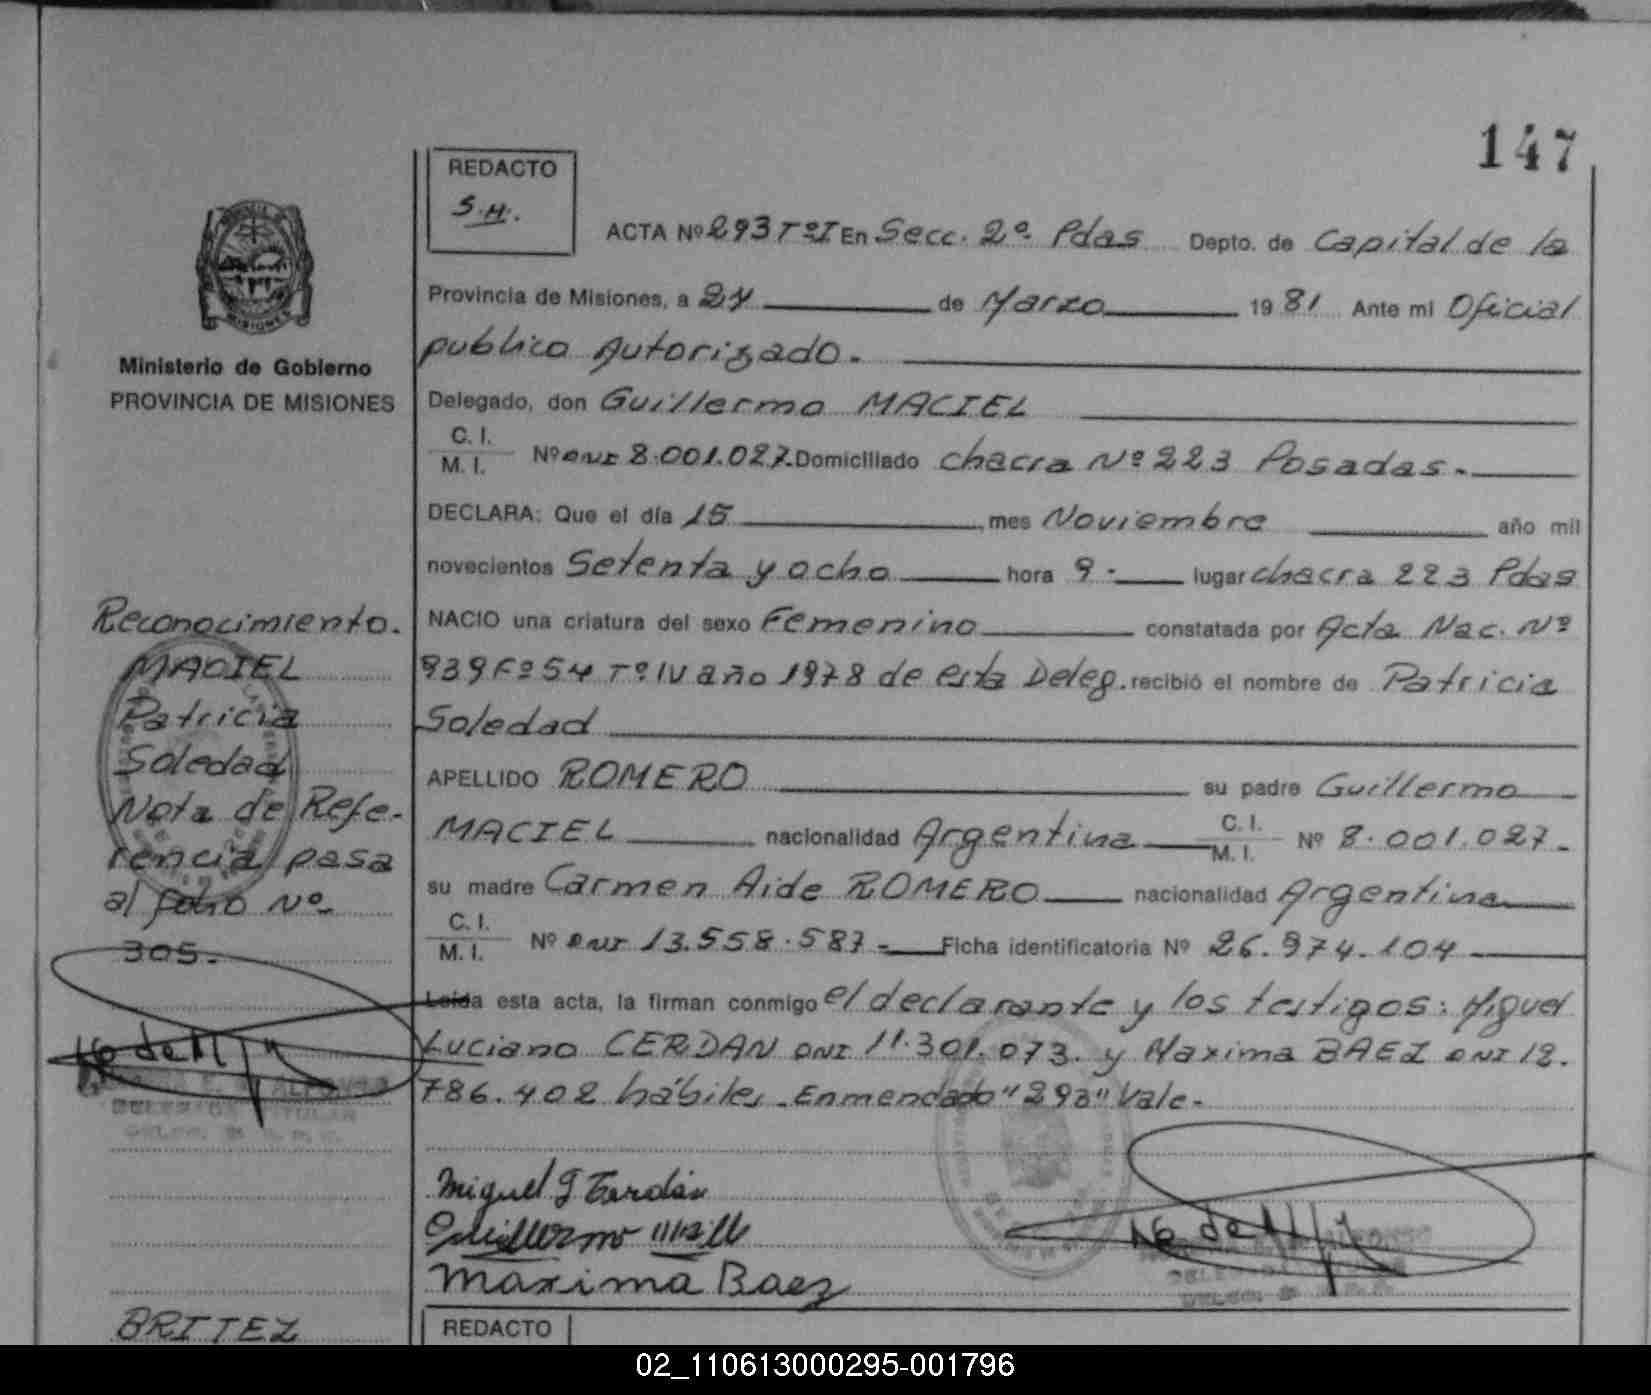 147
REDACTO
S.H.
ACTA Nº 293 Tº I En Secc. 2º Pdas Depto. de Capital de la
Provincia de Misiones, a 24 de Marzo 1981 Ante mi Oficial
publico Autorizado.-
Delegado, don Guillermo MACIEL
C. I.
M. I. Nº DNI 8.001.027. Domiciliado chacra Nº 223 Posadas.-
DECLARA: Que el día 15, mes Noviembre año mil
novecientos Setenta y ocho hora 9.- lugar chacra 223 Pdas
NACIO una criatura del sexo Femenino constatada por Acta Nac. Nº
939 Fº 54 Tº IV año 1978 de esta Deleg. recibió el nombre de Patricia
Soledad
APELLIDO ROMERO su padre Guillermo
MACIEL nacionalidad Argentina C. I. M. I. Nº 8.001.027.-
su madre Carmen Aide ROMERO nacionalidad Argentina
C. I.
M. I. Nº DNI 13.558.587.- Ficha identificatoria Nº 26.974.104
Leída esta acta, la firman conmigo el declarante y los testigos: Miguel
Luciano CERDAN DNI 11.301.073. y Maxima BAEZ DNI 12.
786.402 hábiles.- Enmendado "293" Vale.-
Miguel Cerdán
Guillermo
Maxima Baez
REDACTO
Ministerio de Gobierno
PROVINCIA DE MISIONES
Reconocimiento.
MACIEL
Patricia
Soledad
Nota de Refe-
rencia pasa
al folio Nº
305.-
DELEGADA TITULAR
BRITEZ
02_110613000295-001796